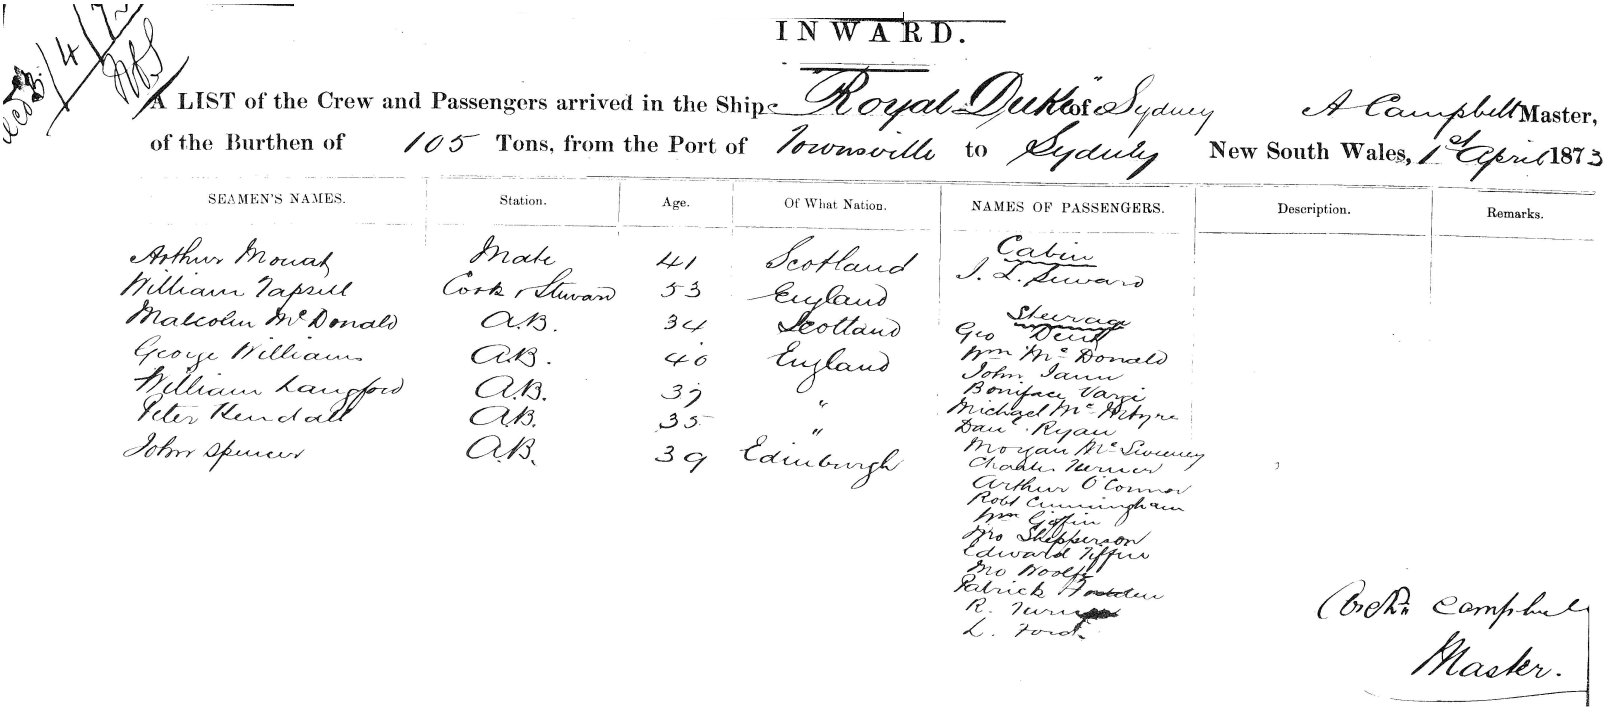 INWARD.
A LIST of the Crew and Passengers arrived in the Ship Royal Duke of Sydney A Campbell Master,
of the Burthen of 105 Tons, from the Port of Townsville to Sydney New South Wales, 1st April 1873
SEAMEN'S NAMES. Station. Age. Of What Nation. NAMES OF PASSENGERS. Description. Remarks.
Arthur Mouat Mate 41 Scotland
William Tapsell Cook & Steward 53 England
Malcolm McDonald A.B. 34 Scotland
George Williams A.B. 40 England
William Langford A.B. 37 "
Peter Kendall A.B. 35 "
John Spencer A.B. 39 Edinburgh
Cabin
J. L. Seward
Steerage
Geo Dent
Wm McDonald
John
Boniface
Michael McIntyre
Danl. Ryan
Morgan McSweeney
Charles Turner
Arthur O'Connor
Robt Cunningham
Wm Giffin
Shepperson
Edward Tiffin
Woolfe
Patrick
R. Turner
L. Ford
Campbell
Master.